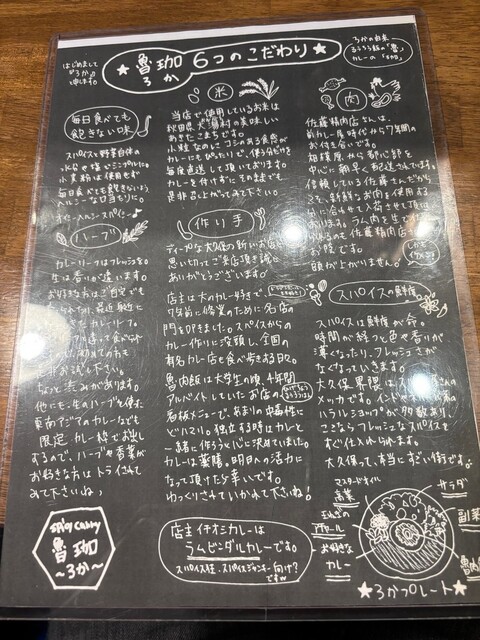 はじめまして
"ろか"と
申します。
★ 魯珈 6つのこだわり ★
ろか
ろかの由来
るうろう飯の「魯」
カレーの「珈」
毎日食べても
飽きない味
スパイスと野菜自体の
小麦粉は使用せず
毎日食べても飽きないよう
ヘルシーな口当たりに。
ハーブ
カレーリーフはフレッシュな
生は香りが違います。
お好きな方はご自宅でも
カレーリーフ。
非お試し下さい。
ちょっと苦みがあります。
他にも、生のハーブを使った
東南アジアのカレーなども
限定カレー枠でお出し
するので、ハーブや香草が
お好きな方はトライされて
みて下さいね♪
SPicy CURRY
魯珈
～ろか～
米
当店で使用しているお米は
秋田県大潟村の美味しい
あきたこまちです。
小粒なのにコシのある食感が
カレーにもぴったりで、使う分だけを
毎度直送して頂いております。
カレーを付けずにその味でも
是非召し上がってみて下さい。
作り手
ディープな大久保の新しいお店に
思い切ってご来店頂き誠に
ありがとうございます!
店主は大のカレー好きで、
7年前に修業のために名店の
門を叩きました。スパイスからの
カレー作りに没頭し、全国の
有名カレー店を食べ歩きする日々。
魯肉飯は大学生の頃、4年間
アルバイトしていたお店の
看板メニューで、あまりの中毒性に
どハマり。独立する時はカレーと
一緒に作ろうと心に決めていました。
カレーは薬膳。明日への活力に
なって頂けたら幸いです。
ゆっくりされていかれて下さいね!
店主イチオシカレーは
ラムビンダルカレーです。
スパイス狂・スパイスジャンキー向け?
ですw
肉
佐藤精肉店さんは、
前カレー屋時代から7年間の
お付き合いです。
相模原から都心部を
中心に朝早く配送されてます。
信頼している佐藤さんだから
こそ、新鮮なお肉を使用する
分に合わせて入荷させて頂いて
おります。ラム肉を生で仕
佐藤精肉店
お陰です。
頭が上がりません。
スパイスの鮮度
スパイスは鮮度が命。
時間が経つと色や香りが
薄くなったり、フレッシュさが
なくなっていきます。
大久保界隈はスパイス
メッカです。インド
ハラルショップが多数あり
ここならフレッシュなスパイスを
すぐ仕入れられます。
大久保って、本当にすごい街です。
マスタードオイル
高菜
サラダ
玉ねぎの
アチャール
副菜
お好きな
カレー
★ろかプレート★